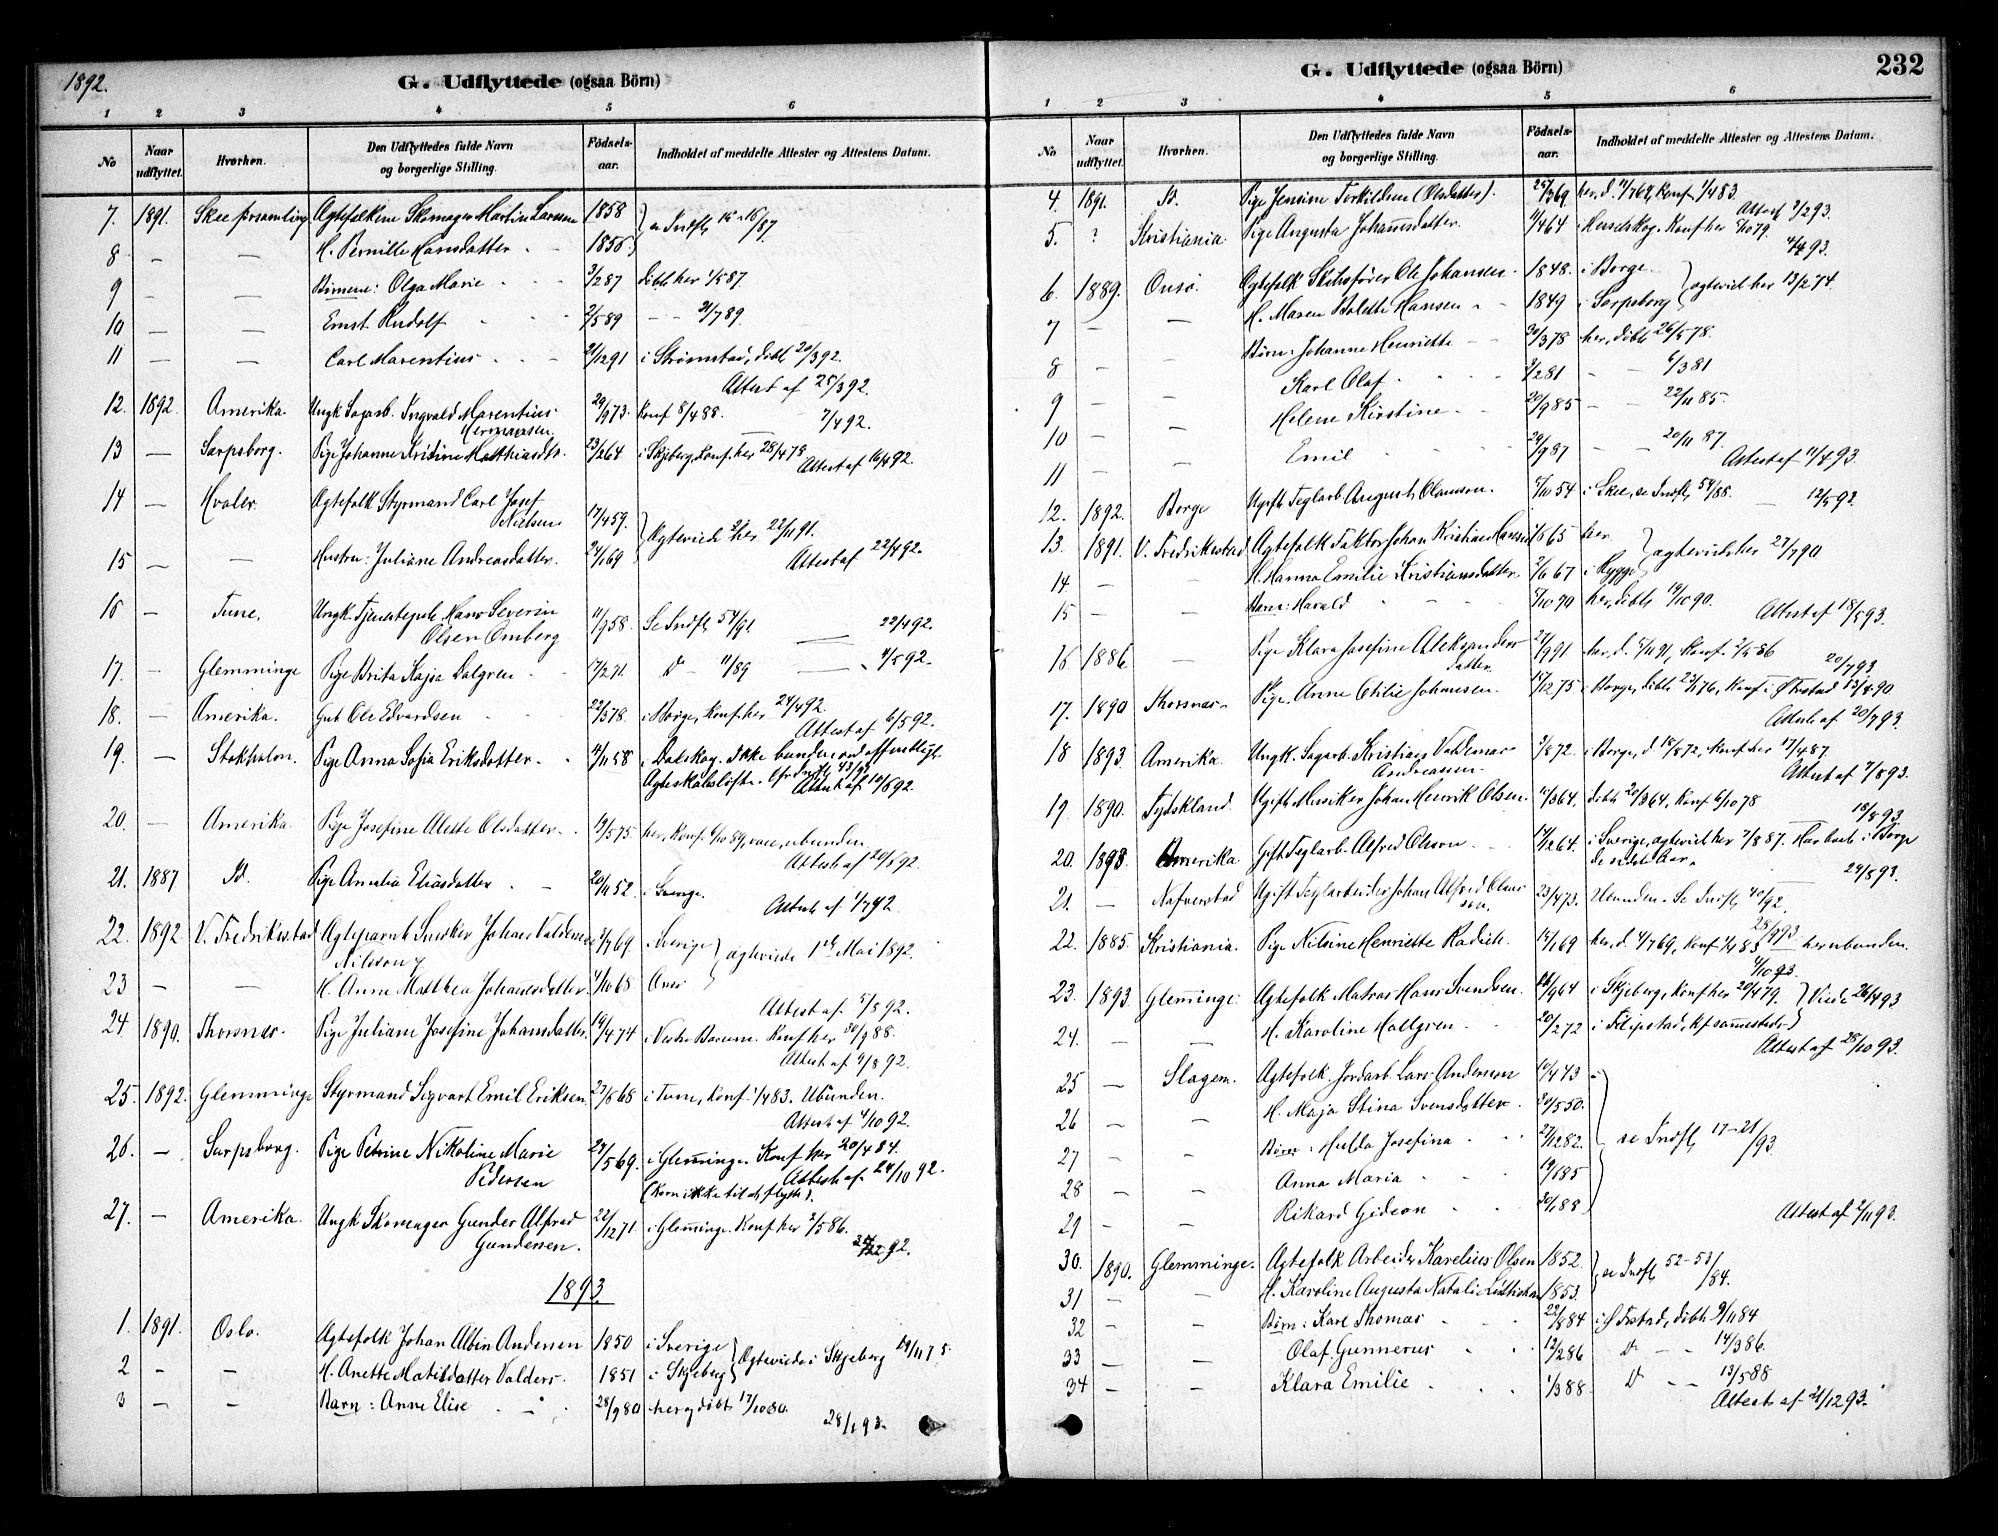 1892.
G. Udflyttede (ogsaa Börn)
1 2 3 4 5 6
No Naar udflyttet. Hvorhen. Den Udflyttedes fulde Navn og borgerlige Stilling. Födsels-aar. Indholdet af meddelte Attester og Attestens Datum.
7. 1891. Skee forsamling Ægtefolkene Skomager Martin Larsen 1858 se Indfl. 15-16/87
8 — — H. Pernille Hansdatter 1856
9 — — Børnene: Olga Marie 3/2 87 døbt her 1/5 87.
10 — — Ernst Rudolf 2/5 89 — 21/7 89.
11 — — Carl Marentius 21/12 91 i Strømstad, døbt 20/3 92.
Attest af 25/3 92.
12. 1892. Amerika. Ungk. Sagarb. Ingvald Marentius Hermansen 29/9 73. Konf 8/4 88. 7/4 92.
13 — Sarpsborg. Pige Johanne Kristine Mathiasdtr. 23/2 64 i Skjeberg, Konf. her 28/4 78
Attest af 16/4 92.
14 — Hvaler. Ægtefolk Styrmand Carl Josef Nielsen 17/4 59. Ægteviede her 22/11 91.
15 — — Hustru: Juliane Andreasdatter. 24/1 69 Attest af 22/4 92.
16 — Tune. Ungk. Tjenestegut Hans Severin Olsen Omberg 11/9 58. Se Indfl. 54/91 — 22/4 92.
17. — Glemminge Pige Brita Kajsa Dalgren 17/2 71. D — 11/89 — 4/5 92.
18. — Amerika. Gut Ole Edvardsen 22/3 78. i Borge, Konf. her 24/4 92.
Attest af 6/5 92.
19. — Stokholm. Pige Anna Sofia Eriksdotter 4/11 58 i Dalskog. Ikke bunden ved offentligt
Ægteskabsløfte.
Attest af 10/6 92
20. — Amerika. Pige Josefine Alette Olsdatter 19/5 75 her, Konf. 6/10 89, vacc., ubunden
Attest af 20/6 92.
21. 1887 Id. Pige Amalia Eliasdatter 20/11 52 i Sverige.
Attest af 1/7 92
22. 1892 V. Fredrikstad Ægteparret Snedker Johan Valdemar Nilsson 2/7 69 i Sverige ægteviede 1ste Mai 1892.
23 — — H. Anne Mathea Johansdatter 4/10 68 Onsø
Attest af 5/8 92.
24. 1890. Thorsnæs. Pige Juliane Josefine Johansdatter 19/4 74 i Vestre Bærum. Konf her 30/9 88.
Attest af 9/8 92.
25. 1892. Glemminge Styrmand Sigvart Emil Eriksen 27/6 68 i Tune, Konf. 1/4 83. Ubunden.
Attest af 4/10 92.
26. — Sarpsborg. Pige Petrine Nikoline Marie Pedersen 27/5 69. i Glemminge Konf her 20/4 84.
Attest af 24/10 92.
(Kom ikke til at flytte).
27. — Amerika. Ungk Skomager Gunder Alfred Gundersen. 22/12 71 i Glemminge. Konf her 2/5 86.
1893.
1. 1891. Oslo. Ægtefolk Johan Albin Andersen 1850 i Sverige Ægteviede i Skjeberg 19/11 75.
2 — — H. Anette Matisdatter Valders. 1851 i Skjeberg
3 — — Barn: Anne Elise 28/9 80 her og døbt 17/10 80.
28/1 93.
232
G. Udflyttede (ogsaa Börn)
1 2 3 4 5 6
No Naar udflyttet. Hvorhen. Den Udflyttedes fulde Navn og borgerlige Stilling. Födsels-aar. Indholdet af meddelte Attester og Attestens Datum.
4. 1891. Pige Jensine Torkildsen (Olsdatter). 25/3 69. her, d. 11/7 69, Konf. 1/4 83.
Attest 3/2 93.
5. ? Kristiania. Pige Augusta Johannsdatter. 11/4 64 i Hersedskog. Konf her 5/10 79.
6. 1889. Onsø. Ægtefolk Skibsfører Ole Johansen 1848. i Borge ægteviet her 13/2 74.
7 — — H. Maren Bolette Hansen 1849 i Sarpsborg
8 — — Børn: Johanne Henriette 30/3 78 her, døbt 26/5 78.
9 — — Karl Olaf 3/2 81 — — 6/3 81
10 — — Helene Kirstine 20/9 85 — — 22/11 85.
11 — — Emil 29/9 87 — — 20/11 87.
Attest af 11/4 93.
12. 1892. Borge Ugift Teglarb. August Olausson. 5/10 54 i Skee, se Indfl. 54/88. — 12/5 93.
13. 1891. V. Fredrikstad Ægtefolk Faktor Johan Kristian Hansen 1/5 65 her. ægteviet her 27/7 90
14 — — H. Hanna Emilie Kristiansdatter 3/6 67 i Rygge
15 — — Barn: Harald 5/10 90 her, døbt 19/10 90.
Attest af 18/5 93.
16 1886. — Pige Klara Josefine Aleksandersdatter. her, d. 5/11 71, Konf. 2/5 86 20/7 93
17. 1890 Thorsnæs Pige Anne Otilie Johansen. 17/12 75 i Borge, døbt 23/1 76, Konf. i Frstad 13/4 90
Attest af 20/7 93.
18 1893. Amerika Ungk. Sagarb. Kristian Valdemar Andreassen. 3/8 72. i Borge, d. 18/8 72, Konf her 17/4 87.
Attest af 7/8 93.
19. 1890. Tydskland. Ugift Musiker Johan Henrik Olsen. 11/3 64. døbt 20/3 64, Konf 6/10 78 18/8 93.
20. 1893. Amerika. Gift Teglarb. Alfred Olsson 14/2 64. i Sverige, ægteviet her 7/8 87. Har boet i Borge
de sidste Aar. 24/8 93.
21. — Nafverstad Ugift Teglarbeider Johan Alfred Olausson. 23/4 73. Ubunden. Se Indfl. 40/92.
22. 1885. Kristiania. Pige Nilsine Henriette Radich. 15/1 69 her, d. 4/7 69, Konf 1/4 83 her ubunden.
4/10 93.
23. 1893. Glemminge. Ægtefolk Matros Hans Svendsen. i Skjeberg, Konf her 20/4 79. Viede 26/4 93
24. — — H. Karoline Hallgren 20/2 72 i Filipstad, kf sammesteds.
Attest af 28/10 93.
25 — Slagen. Ægtefolk Jordarb. Lars Anderson 19/4 43 se Indfl. 17-21/93.
26 — — H. Maja Stina Svensdotter. 30/5 50.
27 — — Børn: Hulda Josefina 27/12 82.
28 — — Anna Maria 19/1 85
29 — — Rikard Gideon 30/1 88
Attest af 2/11 93.
30. 1890. Glemminge. Ægtefolk Arbeider Karelius Olsen 1852. se Indfl. 52-53/84.
31 — — H. Karoline Augusta Natalie 1853.
32 — — Børn: Karl Thomas 22/8 84 i Frstad, døbt 9/11 84
33 — — Olaf Gunnerus 12/2 86 D — — 14/3 86.
34 — — Klara Emilie 1/3 88 D — — 13/5 88
Attest af 21/12 93.